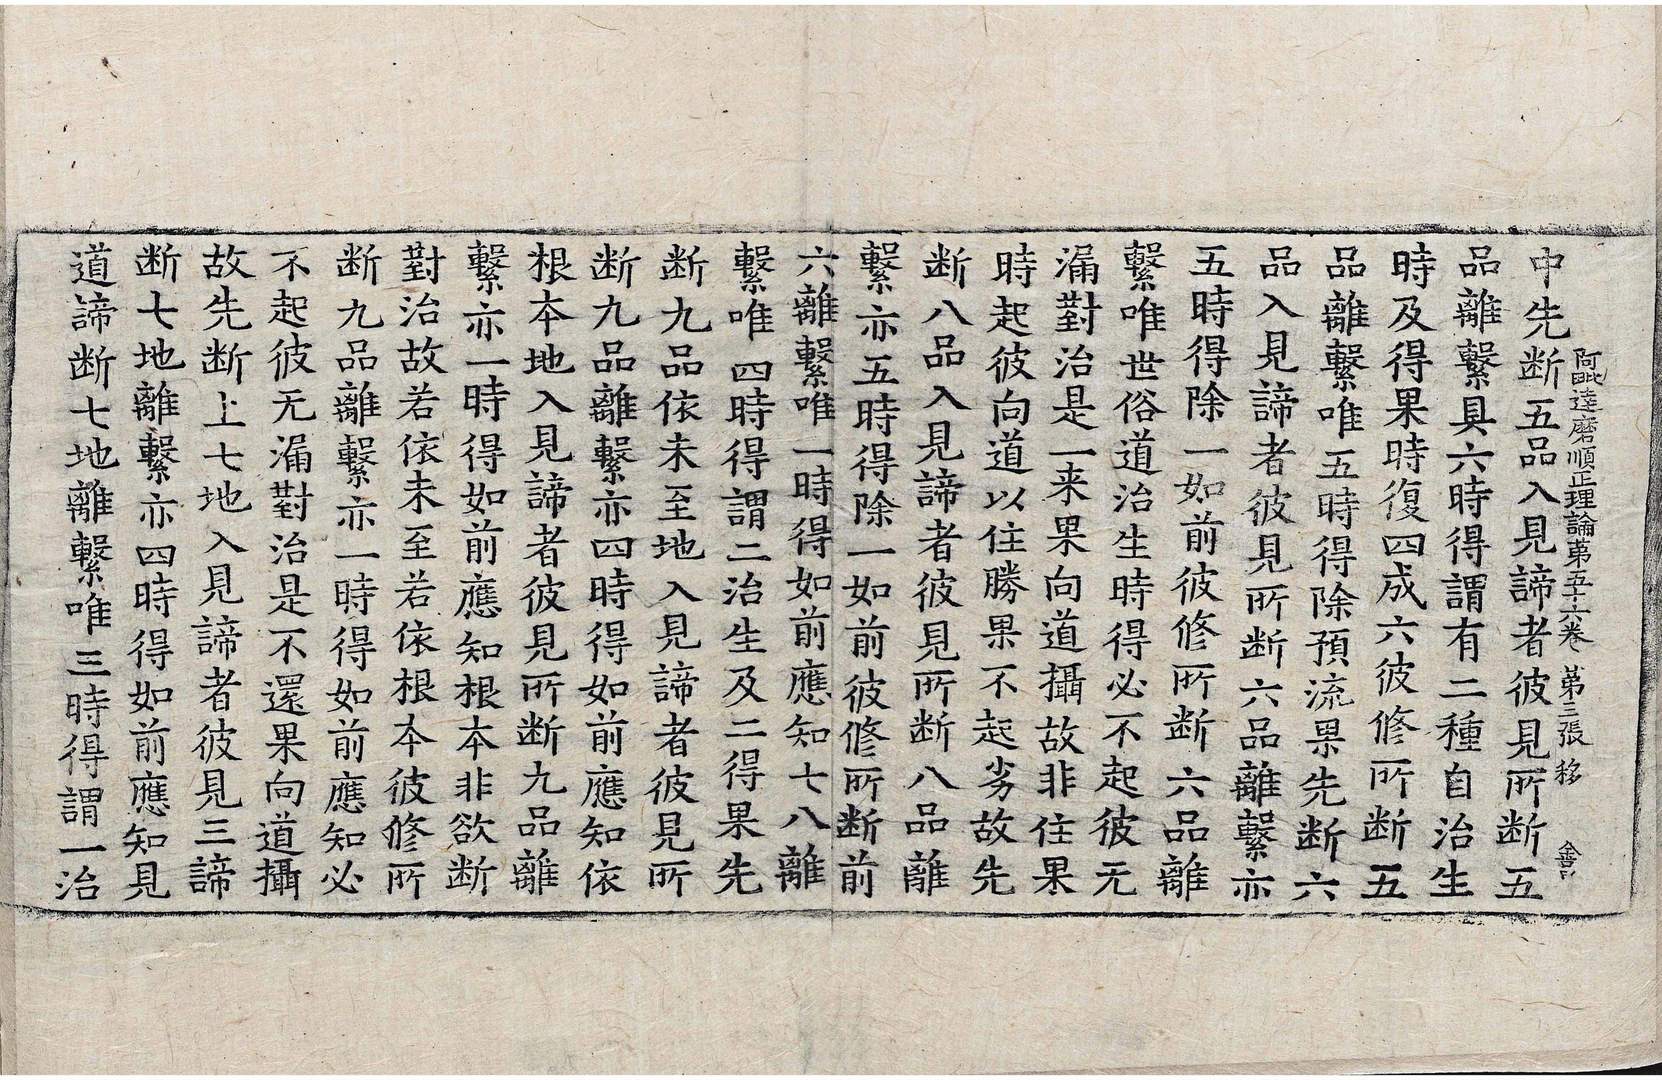 阿毗達磨順正理論第五十六卷 第三張 移
中先断五品入見諦者彼見所断五
品離繫具六時得謂有二種自治生
時及得果時復四成六彼修所断五
品離繫唯五時得除預流果先断六
品入見諦者彼見所断六品離繫亦
五時得除一如前彼修所断六品離
繫唯世俗道治生時得必不起彼无
漏對治是一来果向道攝故非住果
時起彼向道以住勝果不起劣故先
断八品入見諦者彼見所断八品離
繫亦五時得除一如前彼修所断前
六離繫唯一時得如前應知七八離
繫唯四時得謂二治生及二得果先
断九品依未至地入見諦者彼見所
断九品離繫亦四時得如前應知依
根本地入見諦者彼見所断九品離
繫亦一時得如前應知根本非欲断
對治故若依未至若依根本彼修所
断九品離繫亦一時得如前應知必
不起彼无漏對治是不還果向道攝
故先断上七地入見諦者彼見三諦
断七地離繫亦四時得如前應知見
道諦断七地離繫唯三時得謂一治